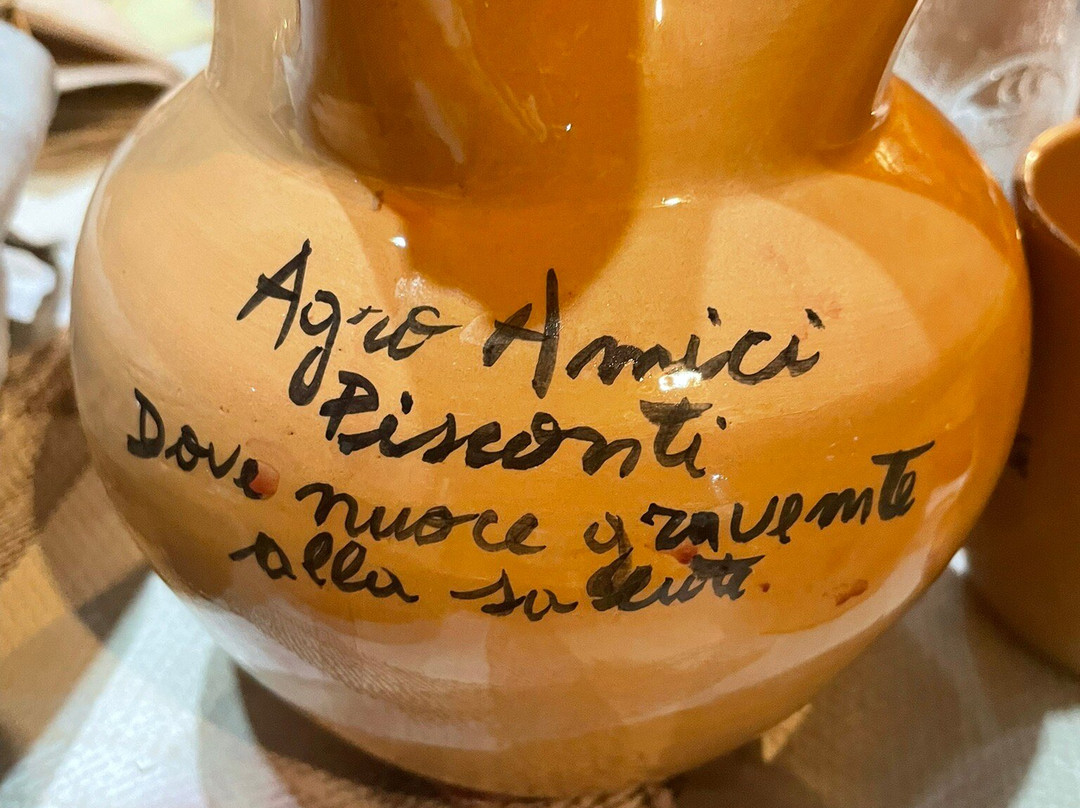 Agro Amici
Pisconti
Dove nuoce gravemte
alla salute